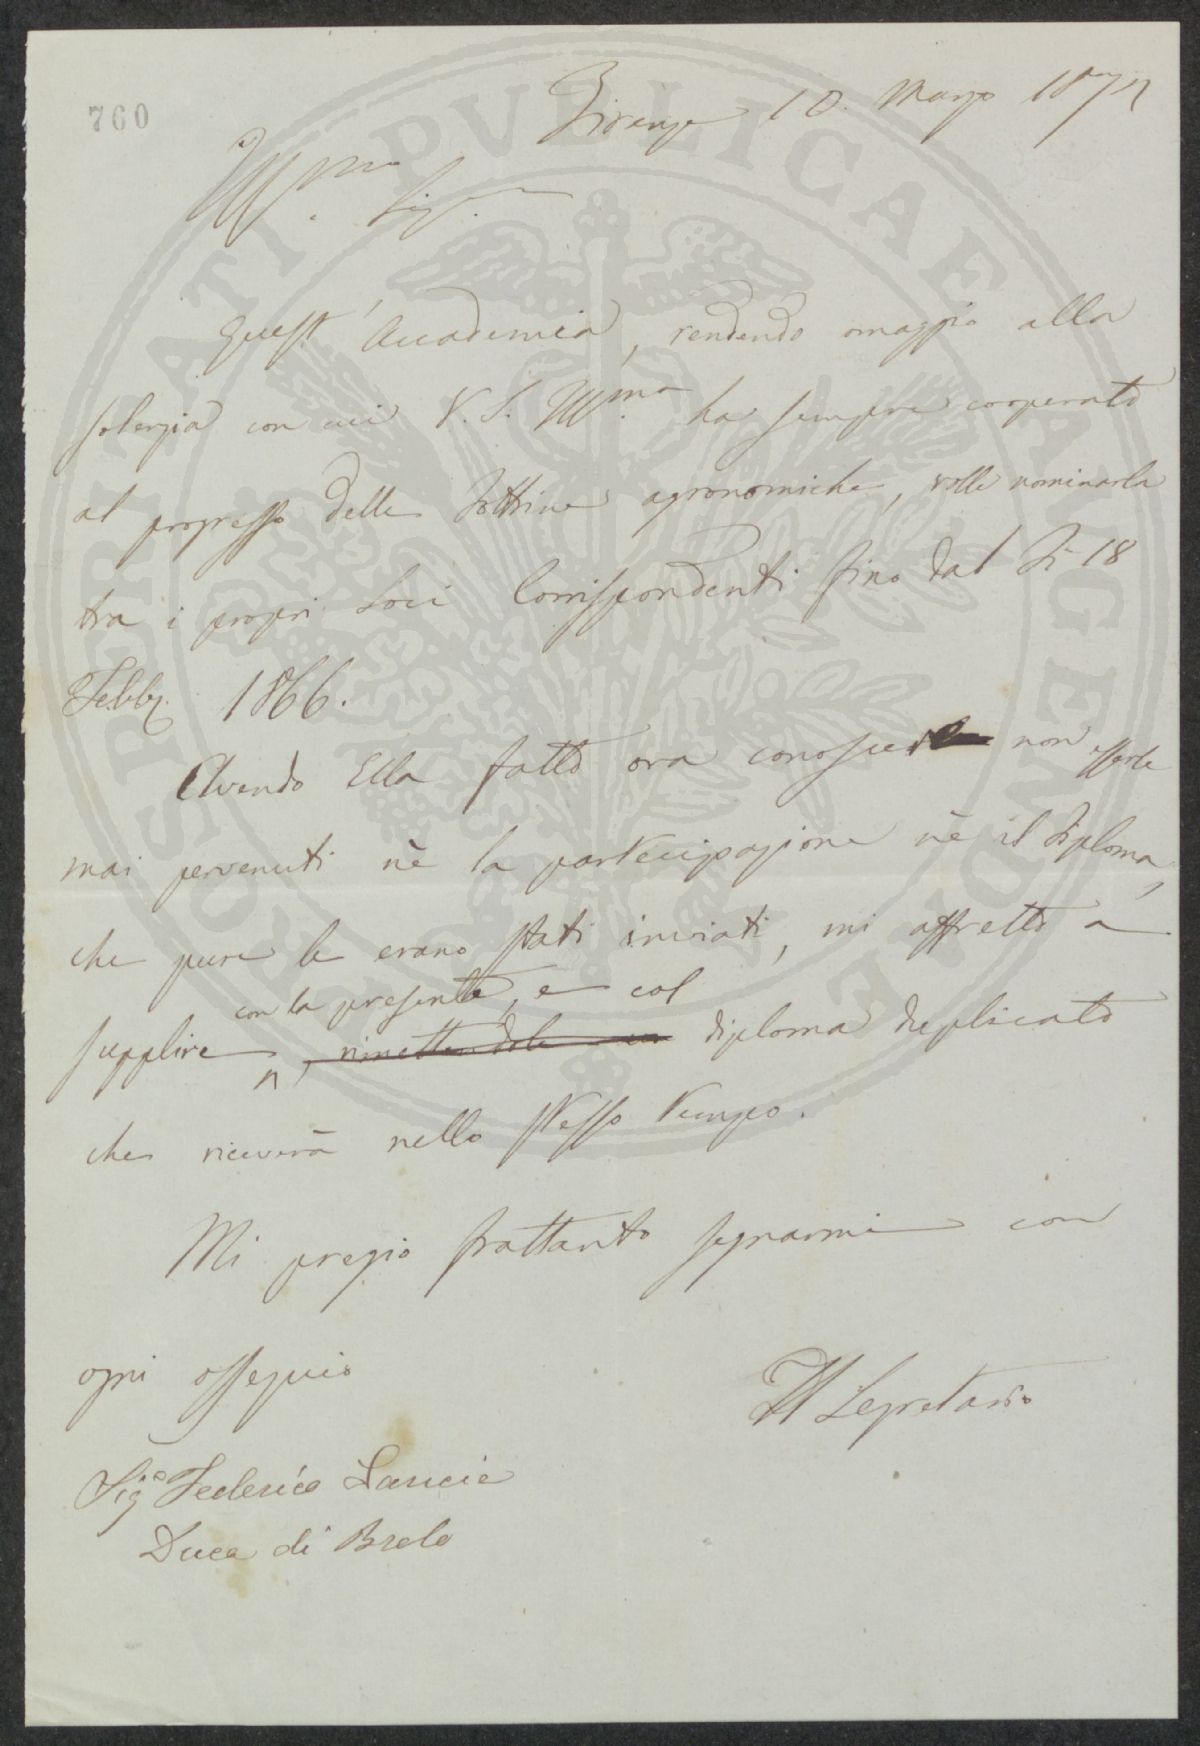 760
Firenze 10. Marzo 187
Ill.mo Sig.
Quest' Accademia, rendendo omaggio alla
solerzia con cui V. S. Ill.ma ha sempre cooperato
al progresso delle dottrine agronomiche, volle nominarla
tra i propri Soci Corrispondenti fino dal dì 18
Febb. 1866.
Avendo Ella fatto ora conoscere non esserle
mai pervenuti nè la partecipazione nè il diploma,
che pure le erano stati inviati, mi affretto a
con la presente, e col
supplire, rimettendole un diploma duplicato
che riceverà nello stesso tempo.
Mi pregio frattanto segnarmi con
ogni ossequio
Il Segretario
Sig.e Federico Lancia
Duca di Brolo
PROSPERITATI PVBLICAE AVGENDAE